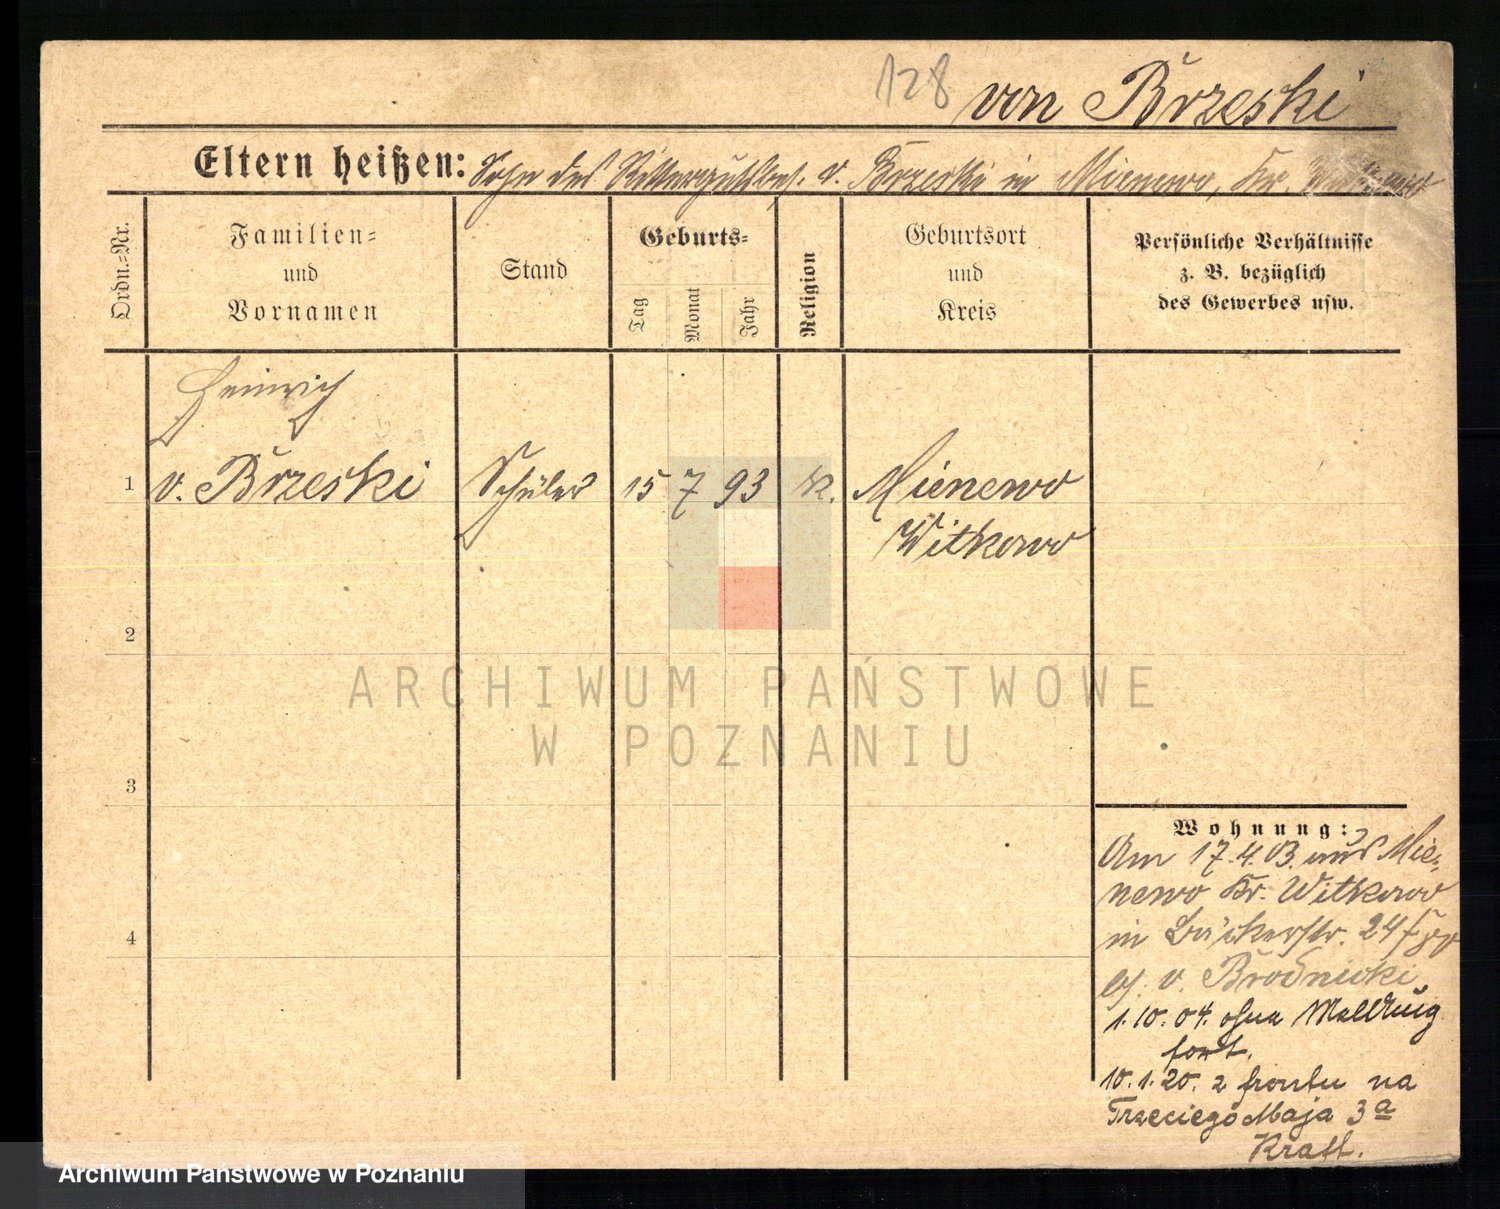 128 von Brzeski
Eltern heißen: Sohn des Rittergutsbes. v. Brzeski in Mienewo, Kr. Witkowo
Ordn.-Nr.
Familien-
und
Vornamen
Stand
Geburts-
Tag
Monat
Jahr
Religion
Geburtsort
und
Kreis
Persönliche Verhältnisse
z. B. bezüglich
des Gewerbes usw.
Heinrich
1 v. Brzeski Schüler 15 7 93 k. Mienewo
Witkowo
2
3
4
Wohnung:
Am 17.4.03. aus Mie-
newo Kr. Witkowo
in Bäckerstr. 24
v. Brodnicki
1.10.04. ohne Meldung
fort.
10.1.20. z frontu na
Trzeciego Maja 3a
Kraft.
ARCHIWUM PAŃSTWOWE
W POZNANIU
Archiwum Państwowe w Poznaniu